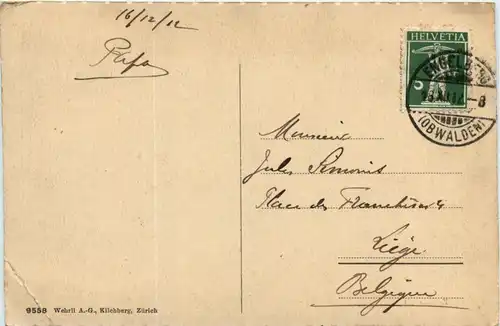 16/12/12
Papa
HELVETIA
5
ENGELBERG
XII.12.-8
(OBWALDEN)
Monsieur
Jules Simonis
Place des Franchises 4
Liége
Belgique
9558 Wehrli A.-G., Kilchberg, Zürich